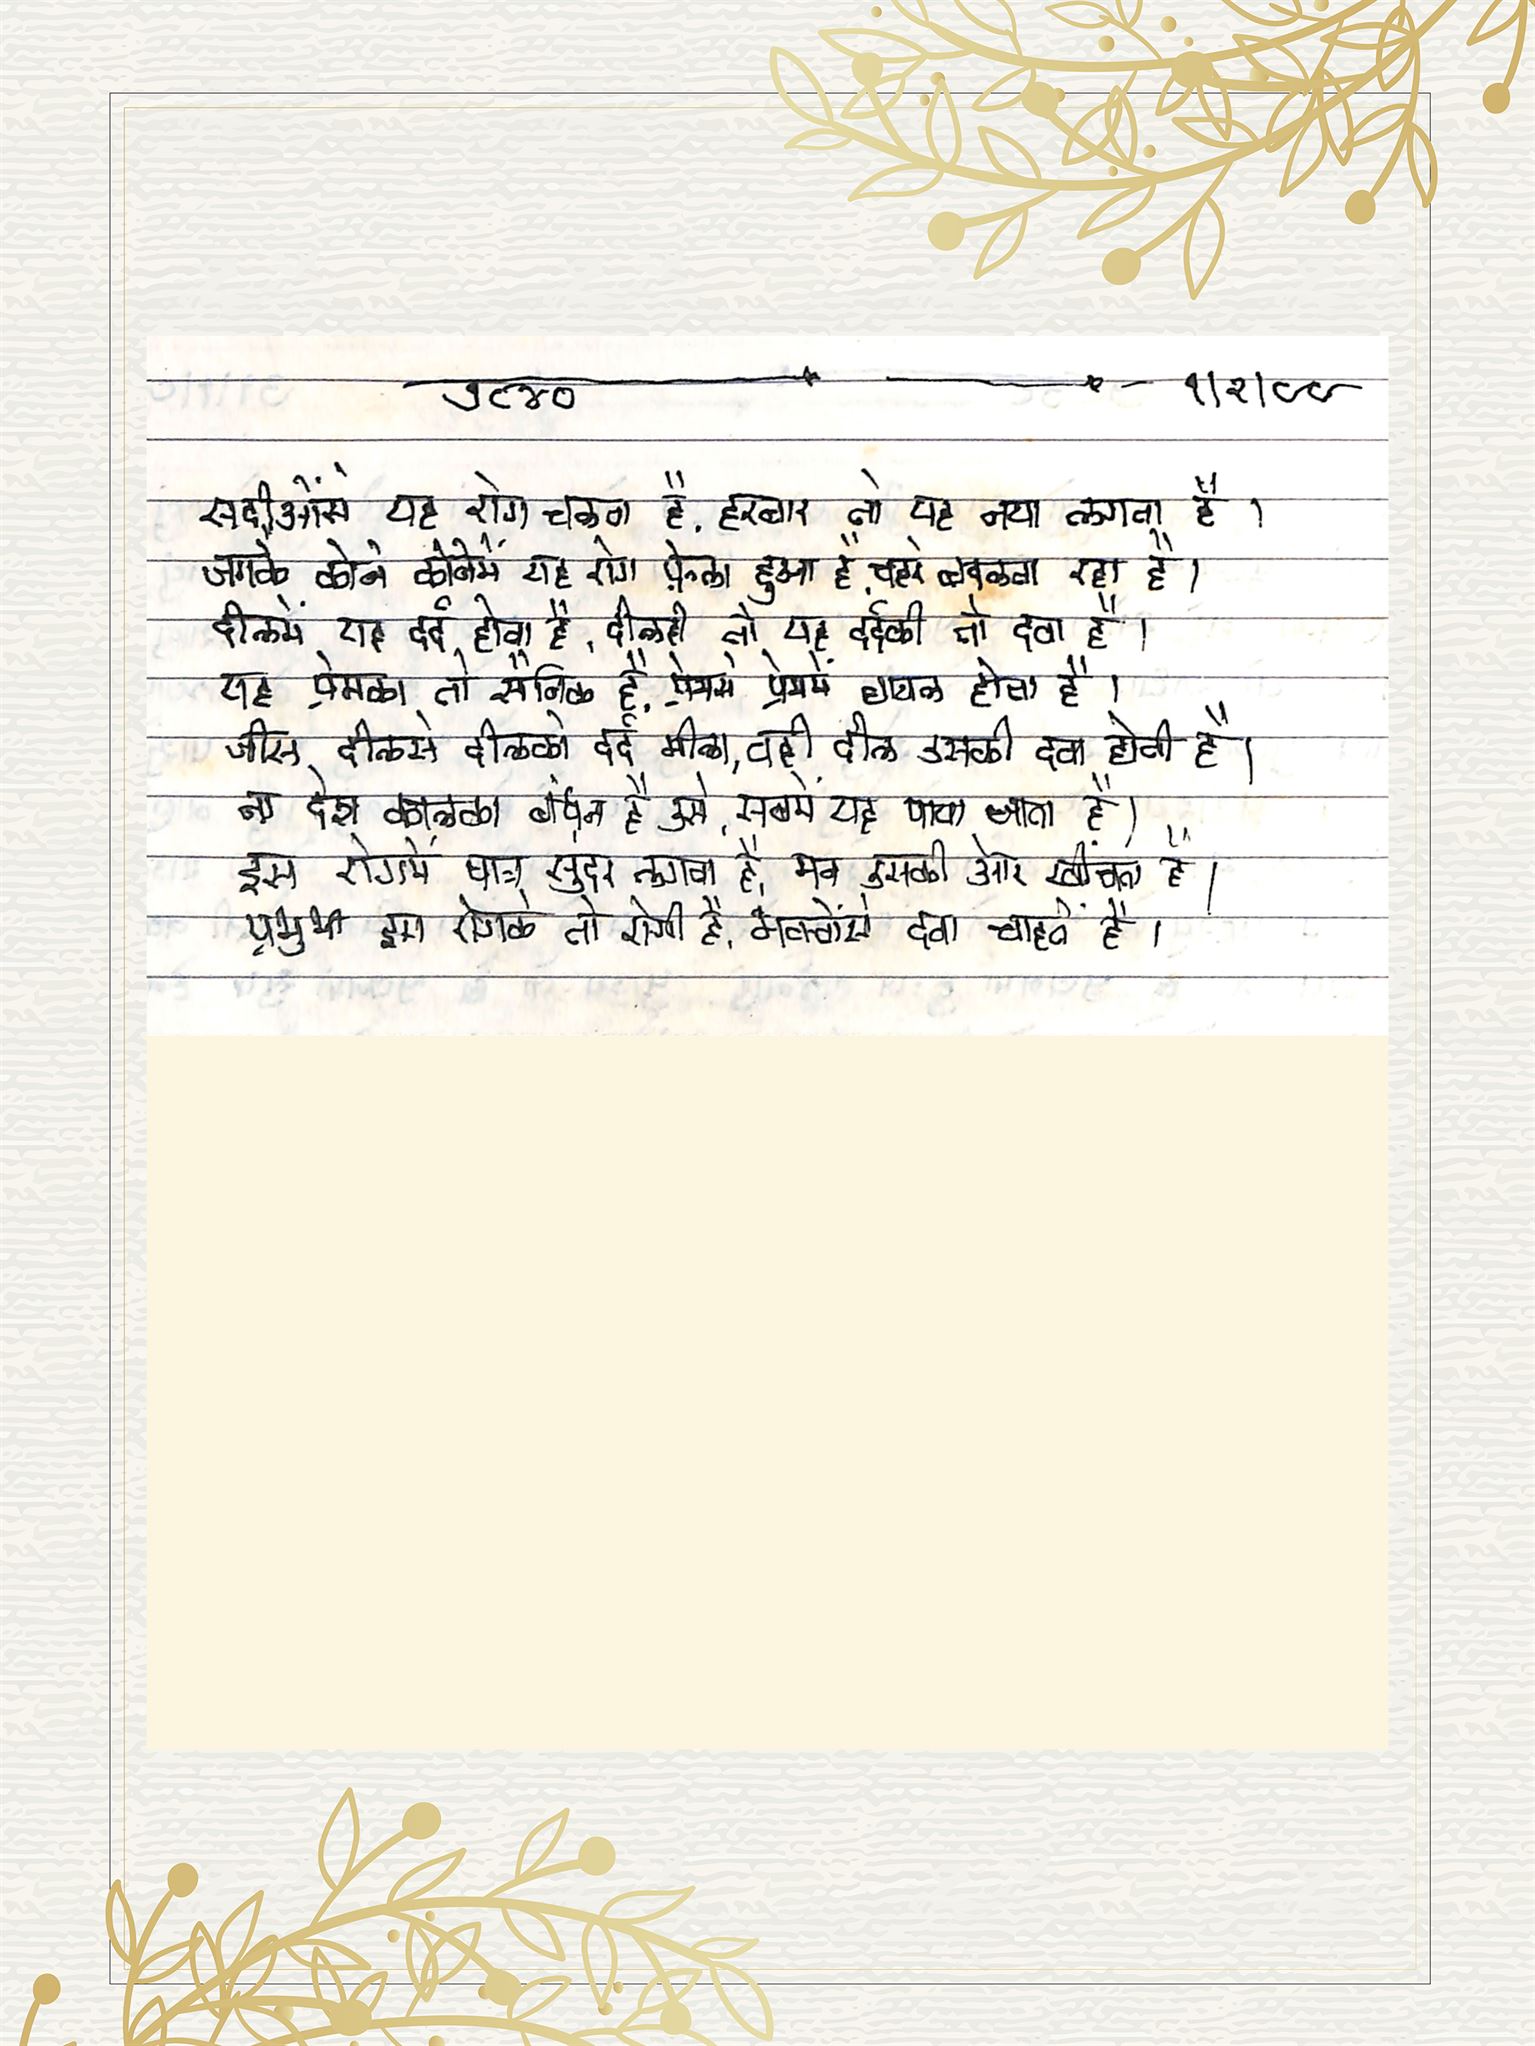 ૭૮૪૦ १/२/८८
सदीओंसे यह रोग चलता है, हरबार तो यह नया लगता है ।
जगके कोने कोनेमें यह रोग फ़ेला हुआ है, चहरे बदलता रहा है ।
दीलमें यह दर्द होता है, दीलही तो यह दर्दकी तो दवा है ।
यह प्रेमका तो सैनिक है, प्रेमसे प्रेममें घायल होता है ।
जीस दीलसे दीलको दर्द मीला, वही दील उसकी दवा होती है ।
ना देश कालका बंधन है उसे, सबमें यह पाया जाता है ।
इस रोगमें पात्र सुंदर लगता है, मन उसकी ओर खींचता है ।
प्रभुभी इस रोगके तो रोगी है, भक्तोंसे दवा चाहते है ।